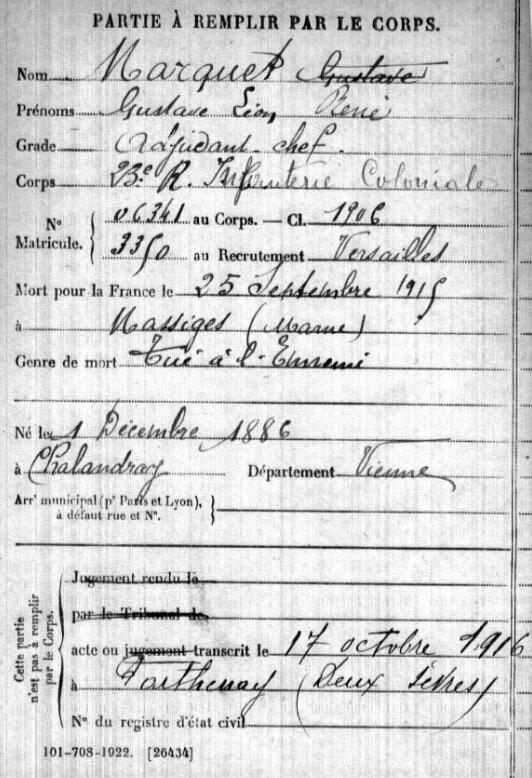 PARTIE À REMPLIR PAR LE CORPS.
Nom Marquet Gustave
Prénoms Gustave Léon René
Grade Adjudant-chef.
Corps 23e R. Infanterie Coloniale
N° Matricule. 06341 au Corps. — Cl. 1906
3350 au Recrutement Versailles
Mort pour la France le 25 Septembre 1915
à Massiges (Marne)
Genre de mort Tué à l'Ennemi
Né le 1 Décembre 1886
à Chalandray Département Vienne
Arrt municipal (pr Paris et Lyon), à défaut rue et N°.
Cette partie n'est pas à remplir par le Corps.
Jugement rendu le
par le Tribunal de
acte ou jugement transcrit le 17 octobre 1916
à Parthenay (Deux Sèvres)
N° du registre d'état civil
101-708-1922. [26434]